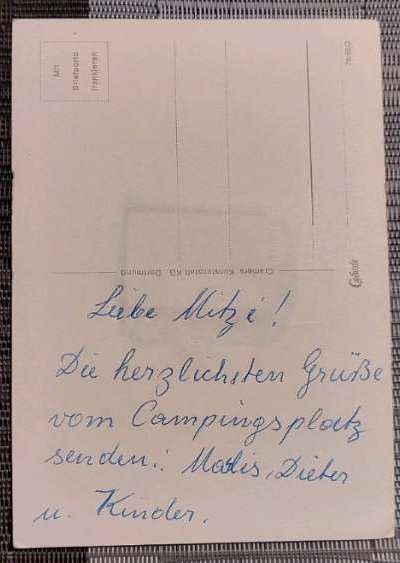 Mit
Briefporto
frankieren
Cramers Kunstanstalt KG, Dortmund
Liebe Mitzi!
Die herzlichsten Grüße
vom Campingsplatz
senden: Malis, Dieter
u. Kinder.